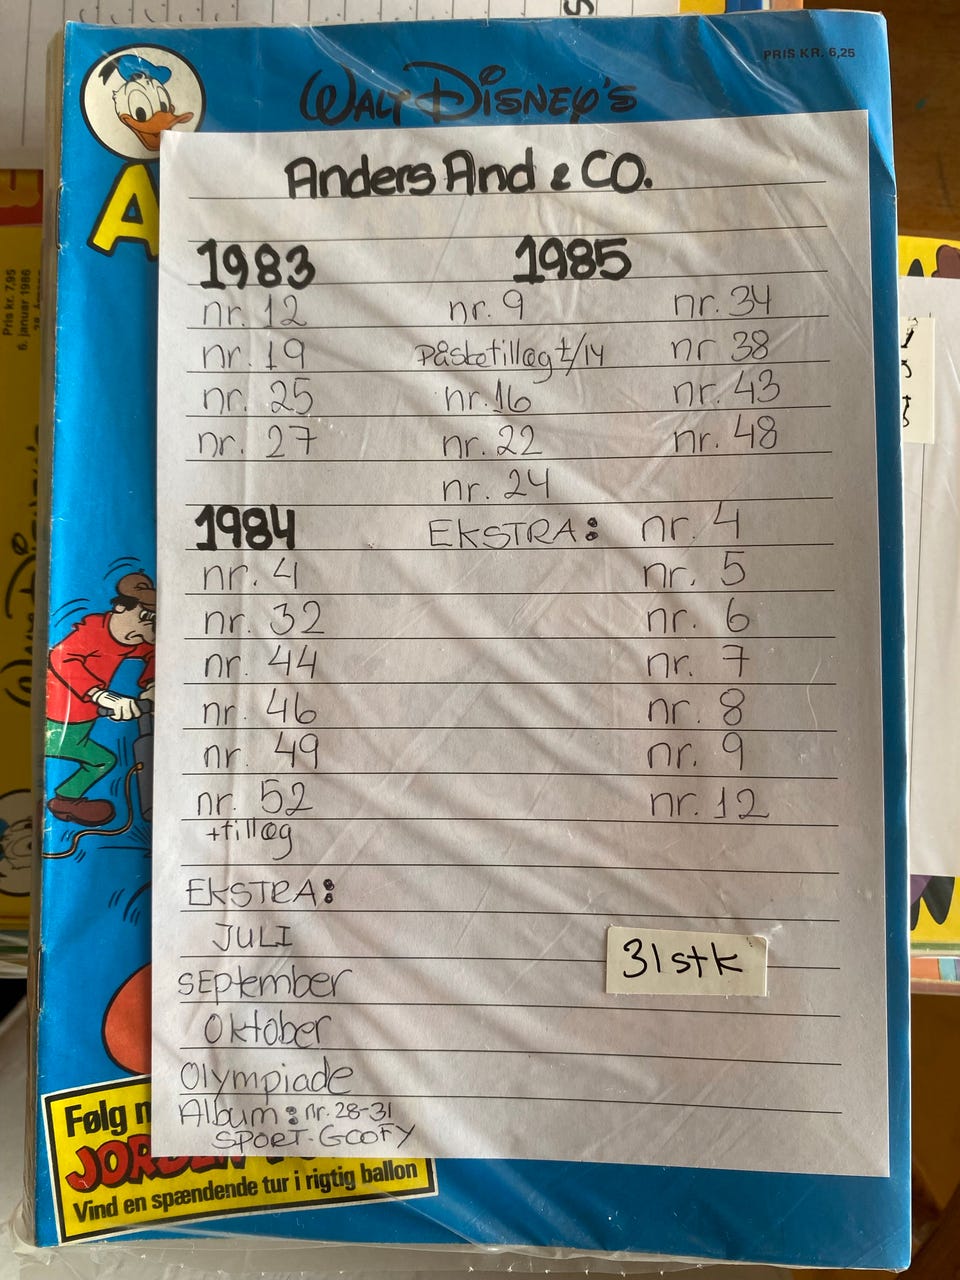 PRIS KR. 6,25
WALT DISNEY'S
Anders And & CO.
1983
nr. 12
nr. 19
nr. 25
nr. 27
1984
nr. 4
nr. 32
nr. 44
nr. 46
nr. 49
nr. 52
+tillæg
EKSTRA:
JULI
SEptember
Oktober
Olympiade
Album: nr. 28-31
SPORT-GOOFY
1985
nr. 9
Påsketillæg t/14
nr. 16
nr. 22
nr. 24
nr. 34
nr 38
nr. 43
nr. 48
EKSTRA: nr. 4
nr. 5
nr. 6
nr. 7
nr. 8
nr. 9
nr. 12
31 stk
Følg
Vind en spændende tur i rigtig ballon
Pris kr. 7,95
6. januar 1986